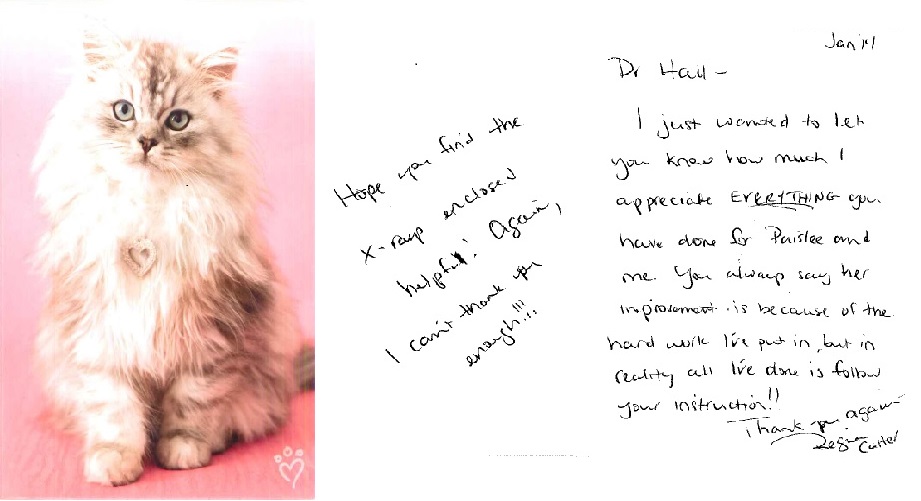 Hope you find the
x-ray enclosed
helpful! Again,
I can't thank you
enough!!!
Jan '14
Dr Hall -
I just wanted to let
you know how much I
appreciate EVERYTHING you
have done for Paislee and
me. You always say her
improvement is because of the
hard work I've put in, but in
reality all I've done is follow
your instruction!!
Thank you again -
Regina Carter